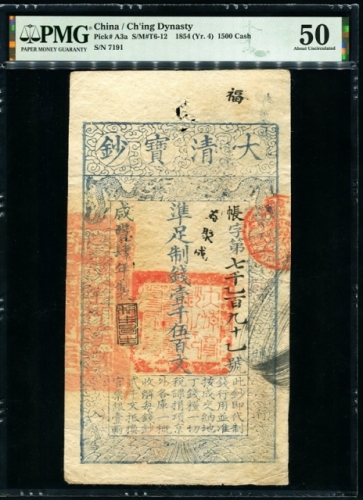 PMG
PAPER MONEY GUARANTY
China / Ch'ing Dynasty
Pick# A3a S/M#T6-12 1854 (Yr. 4) 1500 Cash
S/N 7191
50
About Uncirculated
福
大清寶鈔
帳字第七千一百九十一號
準足制錢壹千伍百文
咸豐肆年製
此鈔即代制
錢行用並准
按成交納地
丁錢糧一切
稅課捐項京
外各庫一概
收解每鈔